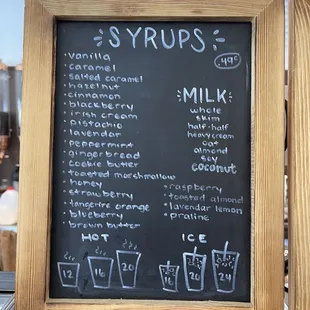 SYRUPS
49¢
vanilla
caramel
salted caramel
hazelnut
cinnamon
blackberry
irish cream
pistachio
lavendar
peppermint
gingerbread
cookie butter
toasted marshmallow
honey
strawberry
tangerine orange
blueberry
brown butter
raspberry
toasted almond
lavendar lemon
praline
MILK
whole
skim
half-half
heavy cream
oat
almond
soy
coconut
HOT
12
16
20
ICE
16
20
24